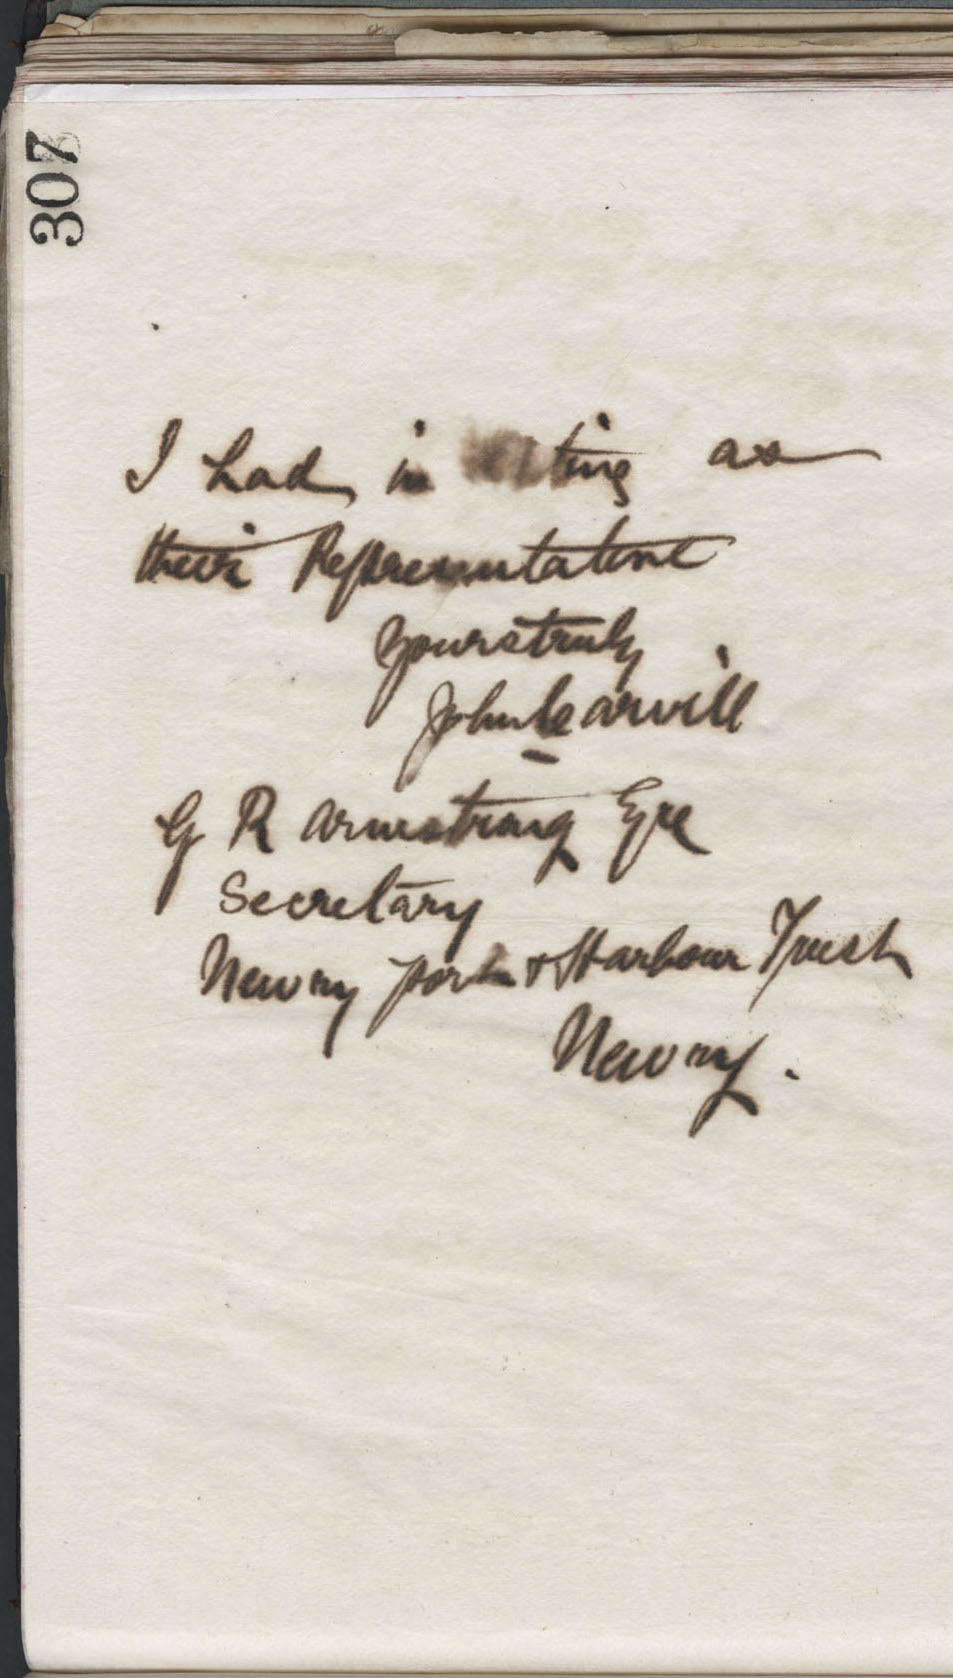 307
I had in as
their Representative
Yours truly
John Carvill
G R Armstrong Esq
Secretary
Newry Port & Harbour Trust
Newry.